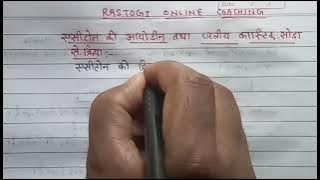 RASTOGI ONLINE COACHING
एसीटोन की आयोडीन तथा जलीय कास्टिक सोडा
से क्रिया :-
एसीटोन को